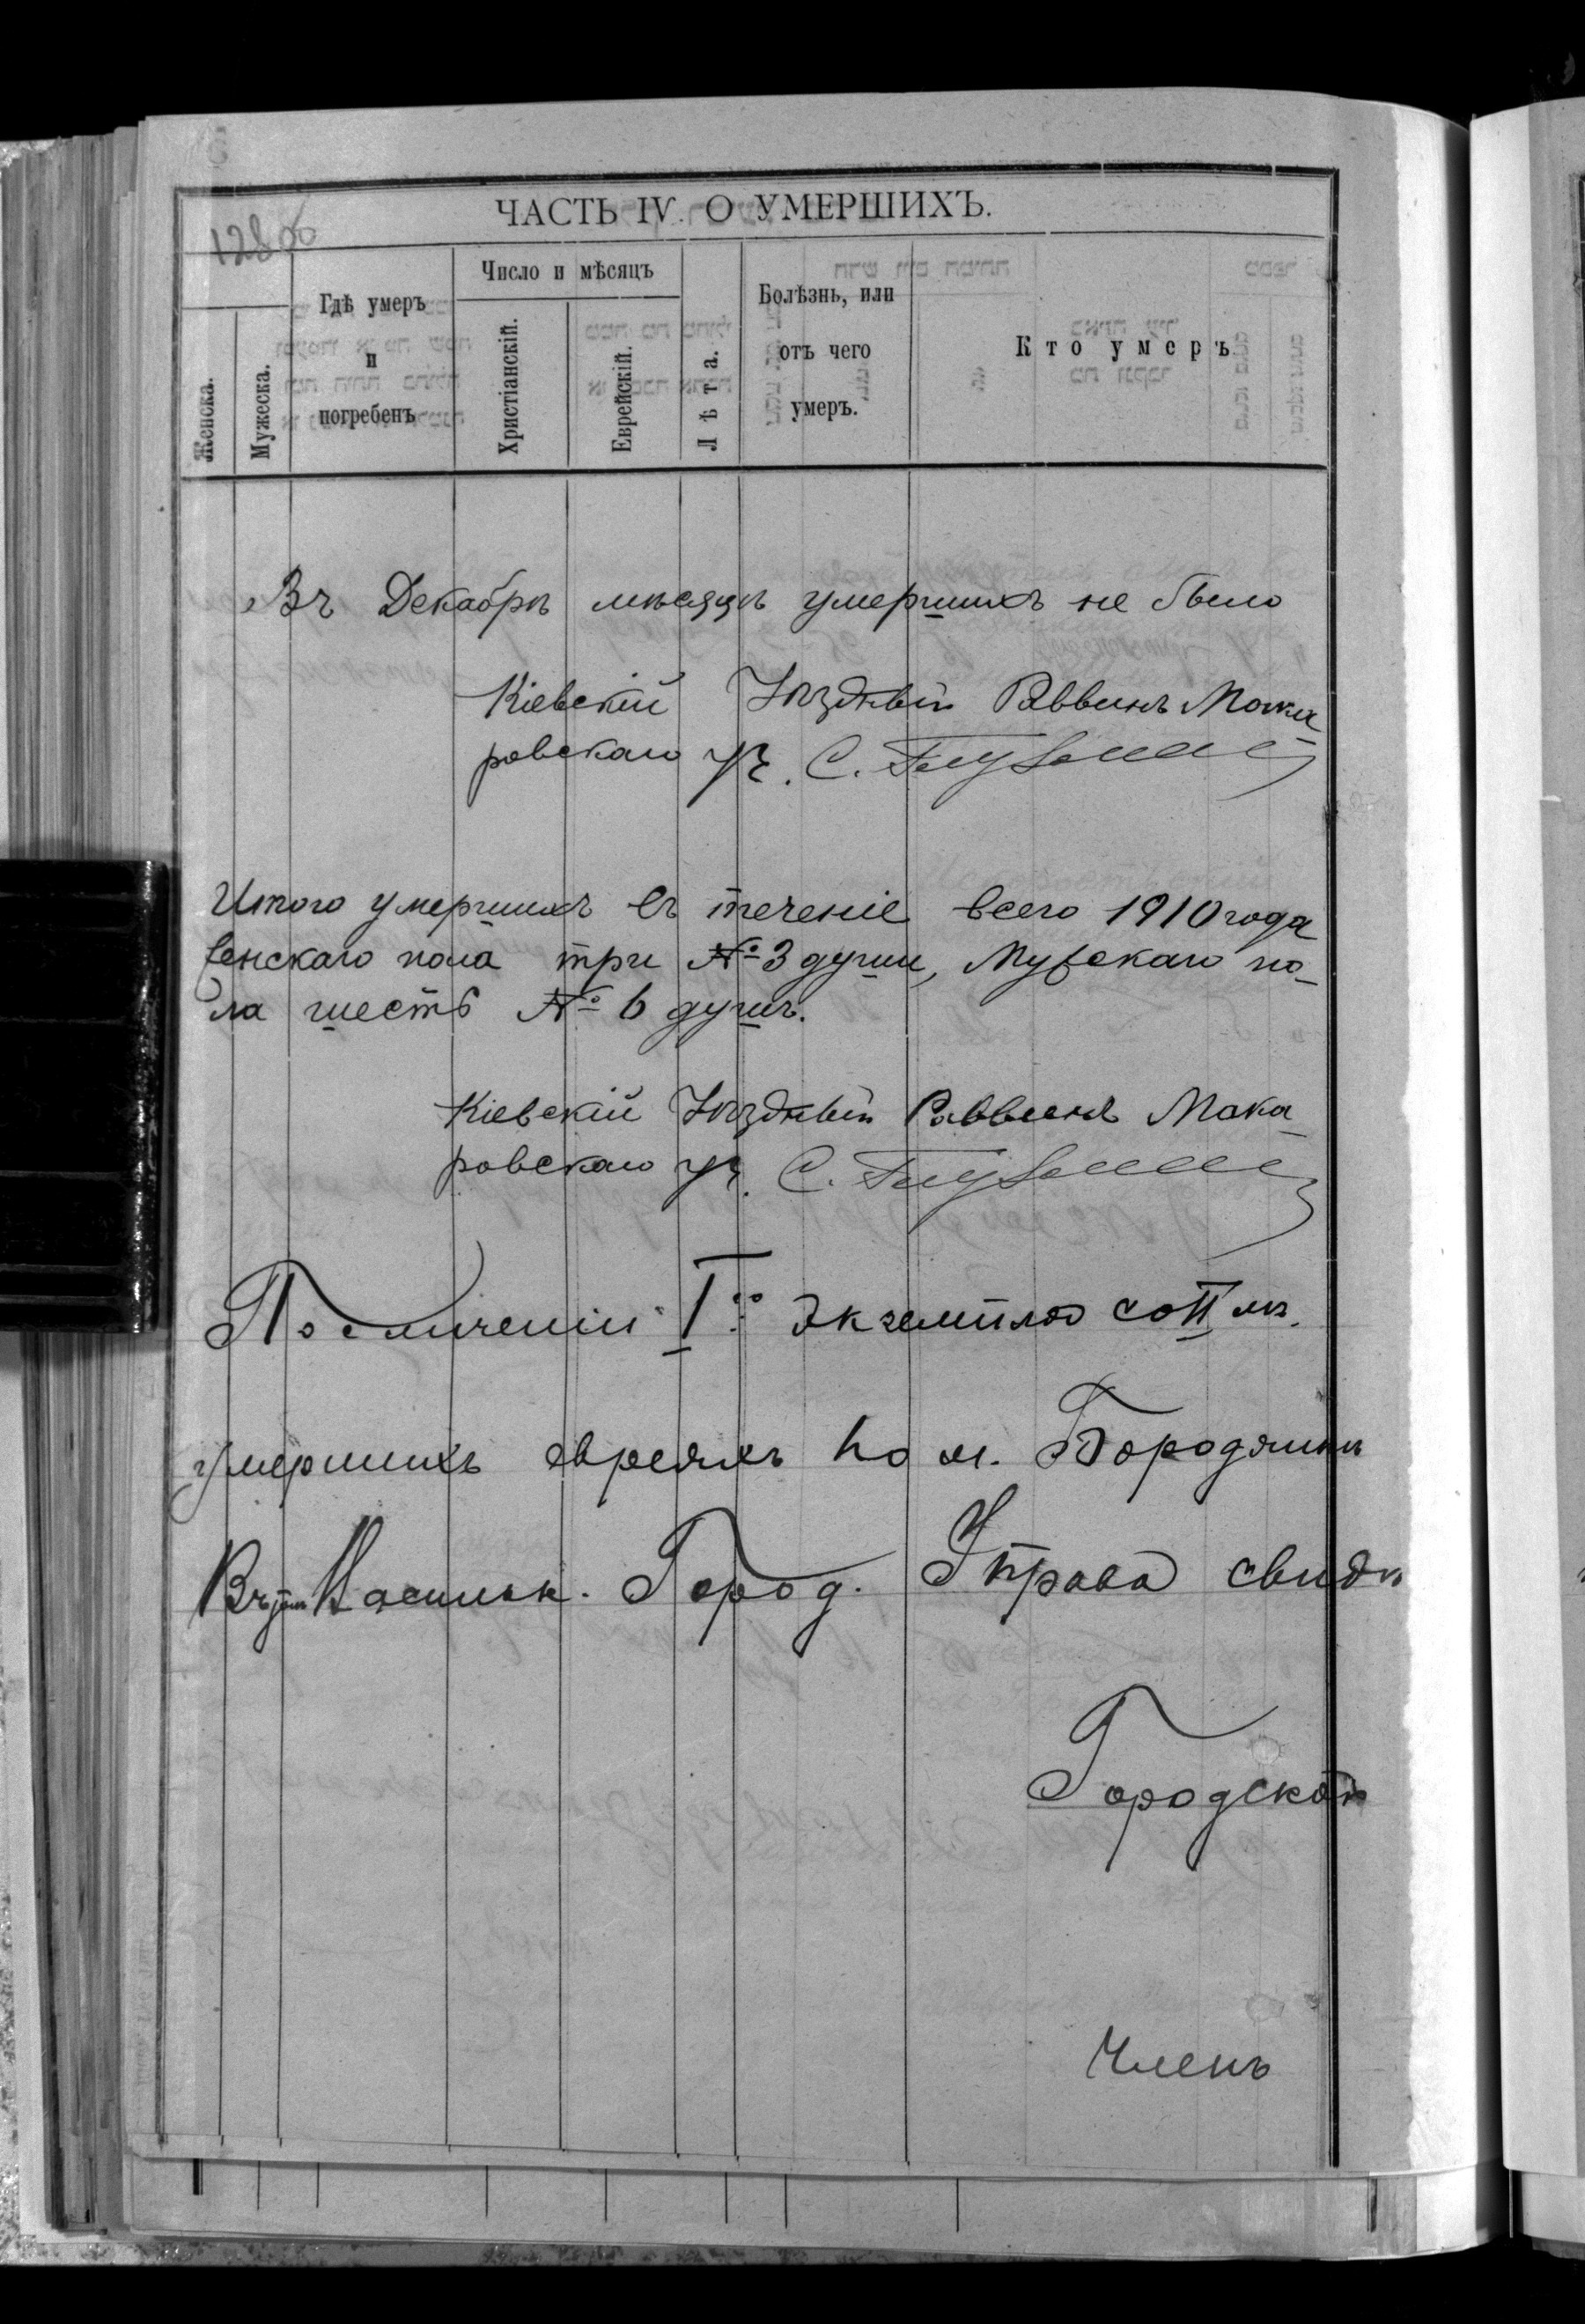 12806
ЧАСТЬ IV. О УМЕРШИХЪ.
Женска.
Мужеска.
Гдѣ умеръ
и
погребенъ
Число и мѣсяцъ
Христіанскій.
Еврейскій.
Лѣта.
Болѣзнь, или
отъ чего
умеръ.
Кто умеръ
Въ Декабрѣ мѣсяцѣ умершихъ не было
Кіевскій Уѣздный Раввинъ Мака
ровскаго уч. С.
Итого умершихъ въ теченіе всего 1910 года
женскаго пола три № 3 души, Мужскаго по-
ла шесть № 6 душъ.
Кіевскій Уѣздный Раввинъ Мака
ровскаго уч. С.
По сличеніи I го экземпляр со II мъ
умершихъ евреяхъ по м. Бородянкѣ
Васильк. Город. Управа свидѣ
Городской
Членъ